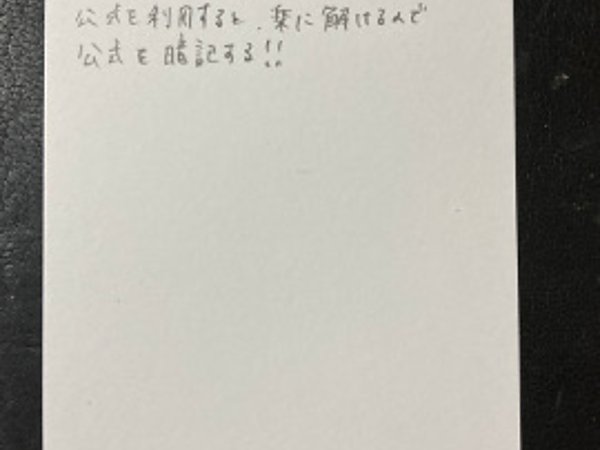 公式を利用すると、楽に解けるんで
公式を暗記する!!